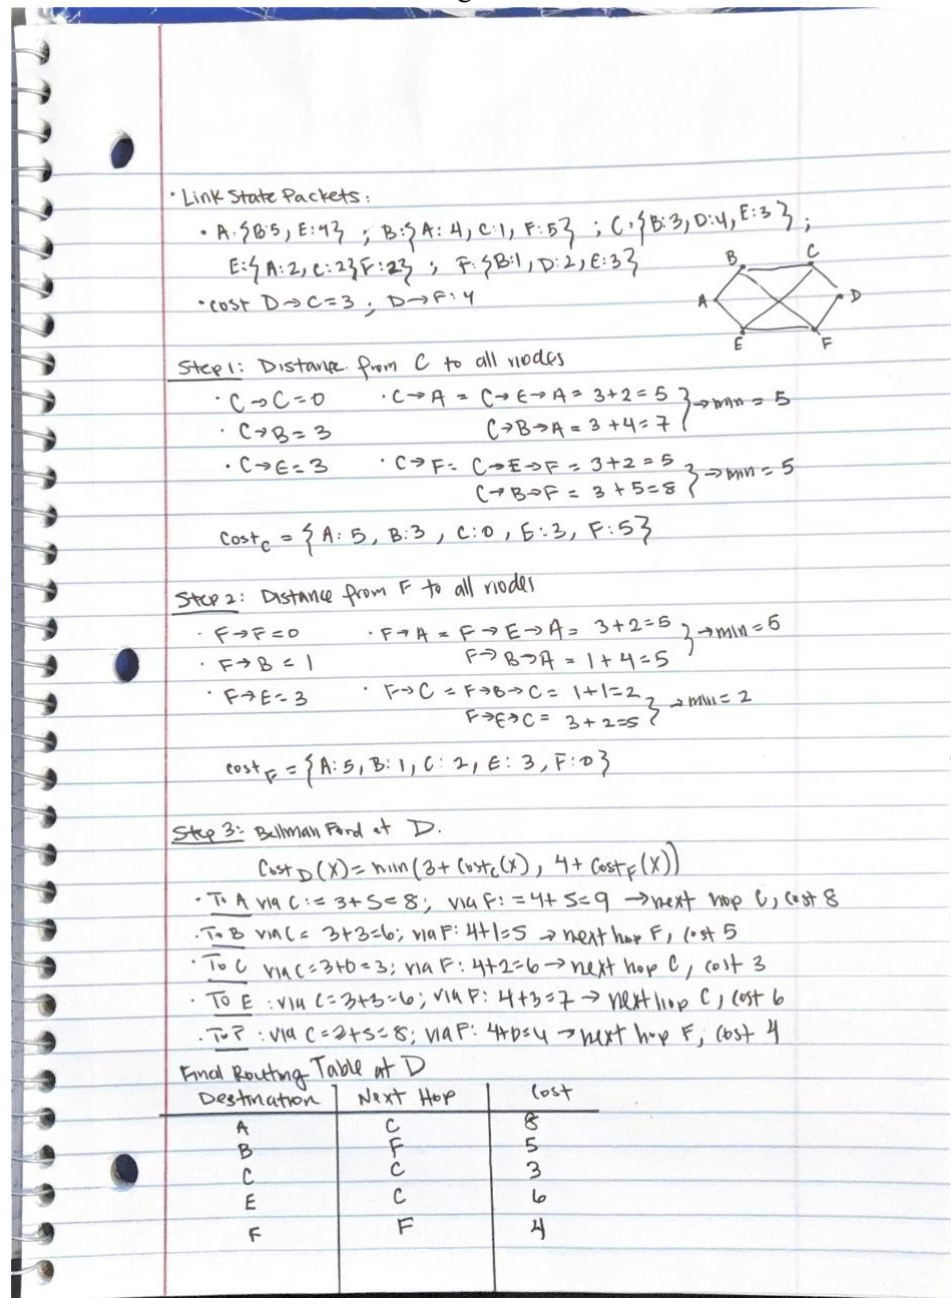 · Link State Packets:
· A:{B:5, E:4} ; B:{A: 4, C:1, F:5} ; C:{B:3, D:4, E:3} ;
E:{A:2, C:2}F:2} ; F:{B:1, D:2, E:3}
· cost D→C=3 ; D→F:4
B C
A D
E F
Step 1: Distance from C to all nodes
· C→C=0 · C→A = C→E→A = 3+2=5 } → min = 5
· C→B=3 C→B→A = 3+4=7
· C→E=3 · C→F= C→E→F = 3+2=5 } → min = 5
C→B→F = 3+5=8
Cost_C = {A: 5, B:3, C:0, E:3, F:5}
Step 2: Distance from F to all nodes
· F→F=0 · F→A = F→E→A = 3+2=5 } → min=5
· F→B = 1 F→B→A = 1+4=5
· F→E=3 · F→C = F→B→C = 1+1=2 } → min = 2
F→E→C = 3+2=5
cost_F = {A:5, B:1, C:2, E:3, F:0}
Step 3: Bellman Ford at D.
Cost_D(X) = min(3+Cost_C(X), 4+Cost_F(X))
· To A via C:= 3+5=8; via F: =4+5=9 → next hop C, cost 8
· To B via C= 3+3=6; via F: 4+1=5 → next hop F, cost 5
· To C via C=3+0=3; via F: 4+2=6 → next hop C, cost 3
· To E : via C=3+3=6; via F: 4+3=7 → next hop C, cost 6
· To F : via C=3+5=8; via F: 4+0=4 → next hop F, cost 4
Final Routing Table at D
Destination | Next Hop | Cost
A C 8
B F 5
C C 3
E C 6
F F 4